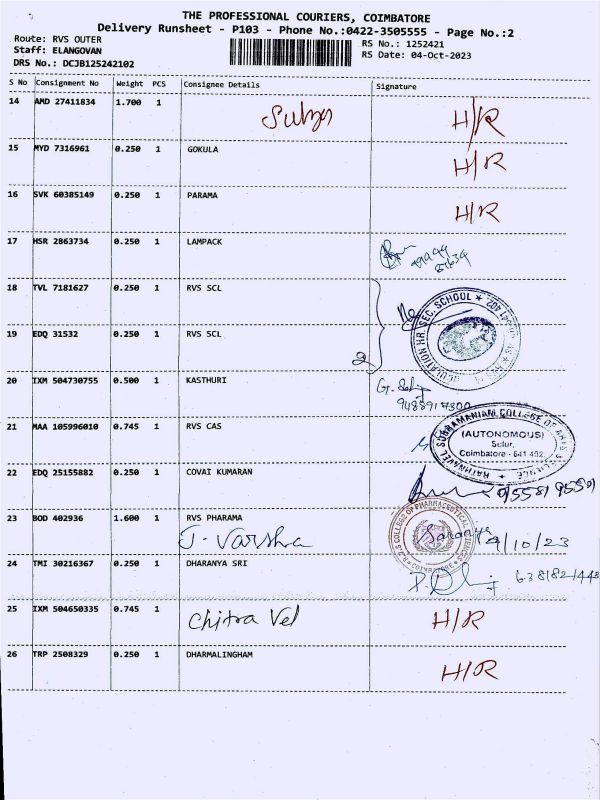 THE PROFESSIONAL COURIERS, COIMBATORE
Delivery Runsheet - P103 - Phone No.:0422-3505555 - Page No.:2
Route: RVS OUTER
Staff: ELANGOVAN
DRS No.: DCJB125242102
RS No.: 1252421
RS Date: 04-Oct-2023
S No Consignment No Weight PCS Consignee Details Signature
14 AMD 27411834 1.700 1 H/R
15 MYD 7316961 0.250 1 GOKULA H/R
16 SVK 60385149 0.250 1 PARAMA H/R
17 HSR 2863734 0.250 1 LAMPACK
18 TVL 7181627 0.250 1 RVS SCL
19 EDQ 31532 0.250 1 RVS SCL
HR. SEC. SCHOOL
20 IXM 504730755 0.500 1 KASTHURI
21 MAA 105996010 0.745 1 RVS CAS
RATHNAVEL SUBRAMANIAM COLLEGE OF ARTS & SCIENCE
(AUTONOMOUS)
Sulur,
Coimbatore - 641 402.
22 EDQ 25155882 0.250 1 COVAI KUMARAN
23 BOD 402936 1.600 1 RVS PHARAMA
J. Varsha
COLLEGE OF PHARMACEUTICAL SCIENCES
COIMBATORE
4/10/23
24 TMI 30216367 0.250 1 DHARANYA SRI
25 IXM 504650335 0.745 1 Chitra Vel H/R
26 TRP 2508329 0.250 1 DHARMALINGHAM H/R